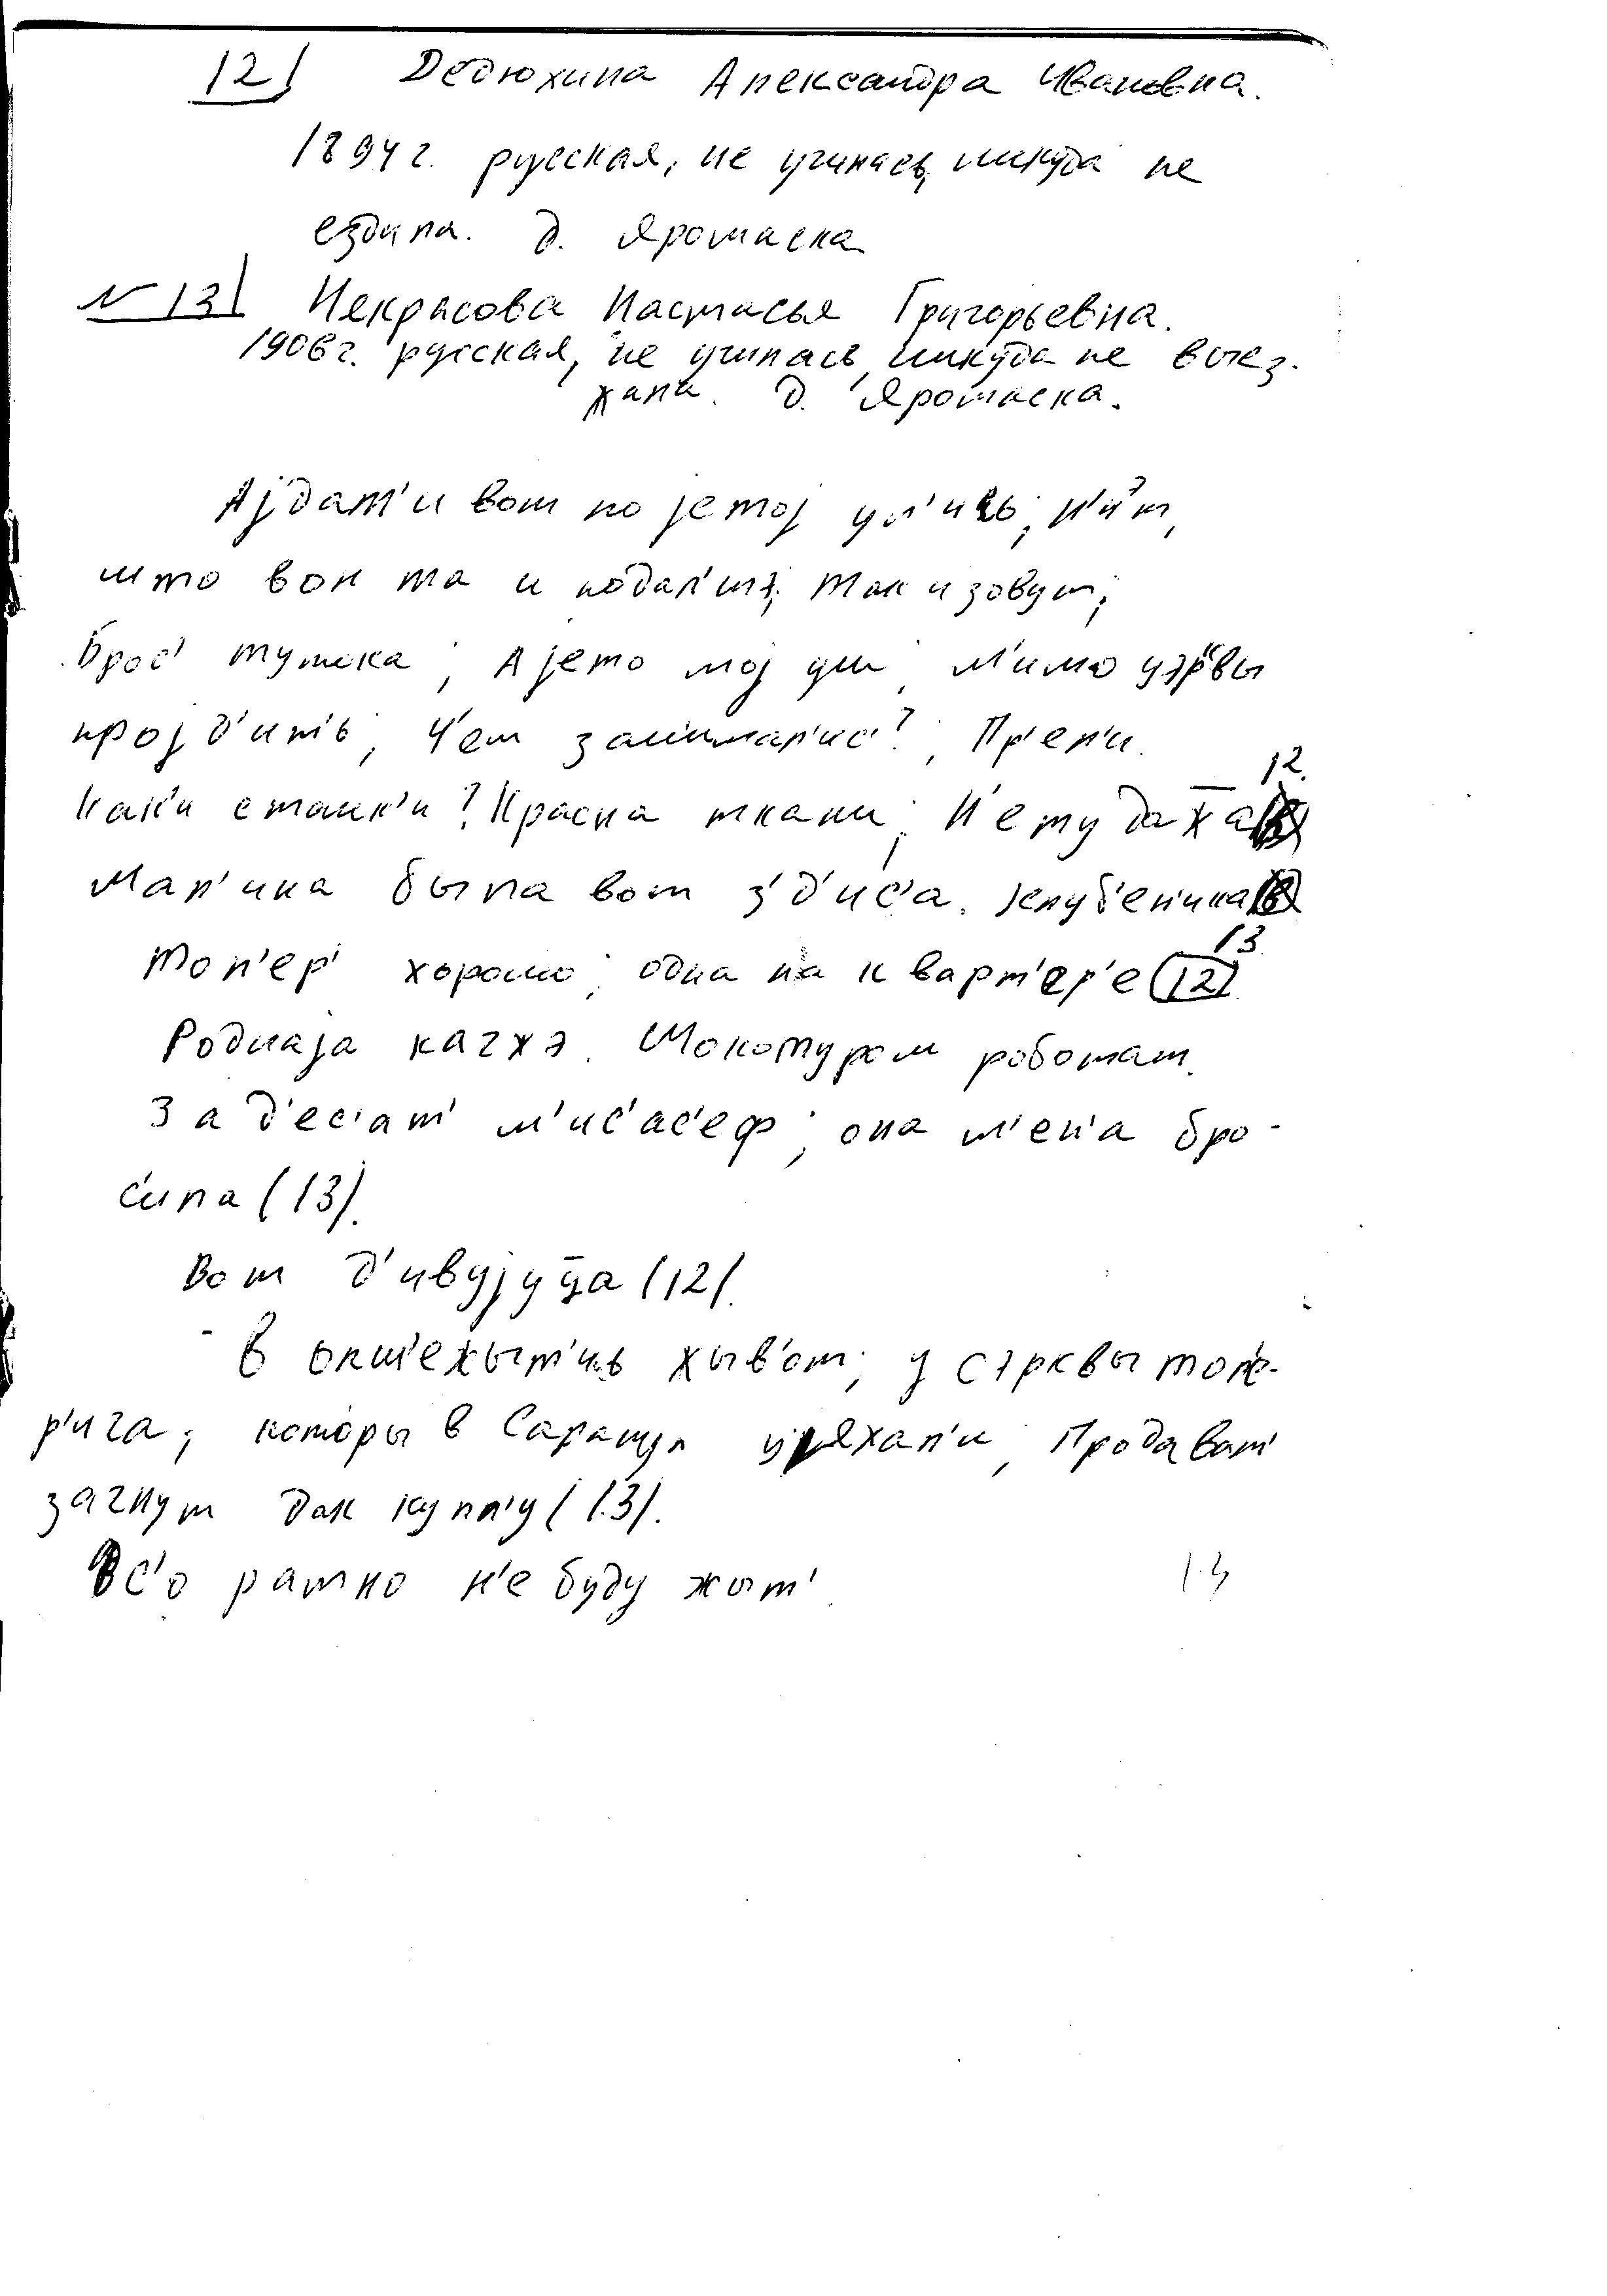 12) Дедюхина Александра Ивановна.
1894 г. русская, не училась, никуда не
ездила. д. Яромаска
N 13) Некрасова Настасья Григорьевна.
1906 г. русская, не училась, никуда не выез-
жала. д. Яромаска.
Ајдат'и вот по јетој ул'иць; н'и т,
што вон та и подал'шэ; так и зовут;
Брос' тутока; А јето мој уш, м'имо цэрквы
пројд'ить; Ч'ем зан'имал'ис'?; Пр'ел'и.
Как'и станк'и? Кросна ткани; Н'ету да жа 12.
Мал'ина была вот з'д'ис'а. јклуб'ен'ика
Топ'ер' хорошо; одна на квартер'е (12) 13.
Роднаја кагжэ. Шокотуром роботат.
За д'ес'ат' м'ис'ас'еф; она м'ен'а бро-
с'ила (13).
Вот д'ивујуца (12).
В опш'ежыт'иь жыв'от; у сэрквы
р'ига; которы в Сарапул уяхал'и; Продават'
зачнут дак купл'у (13).
Вс'о ратно н'е буду жыт'. 13